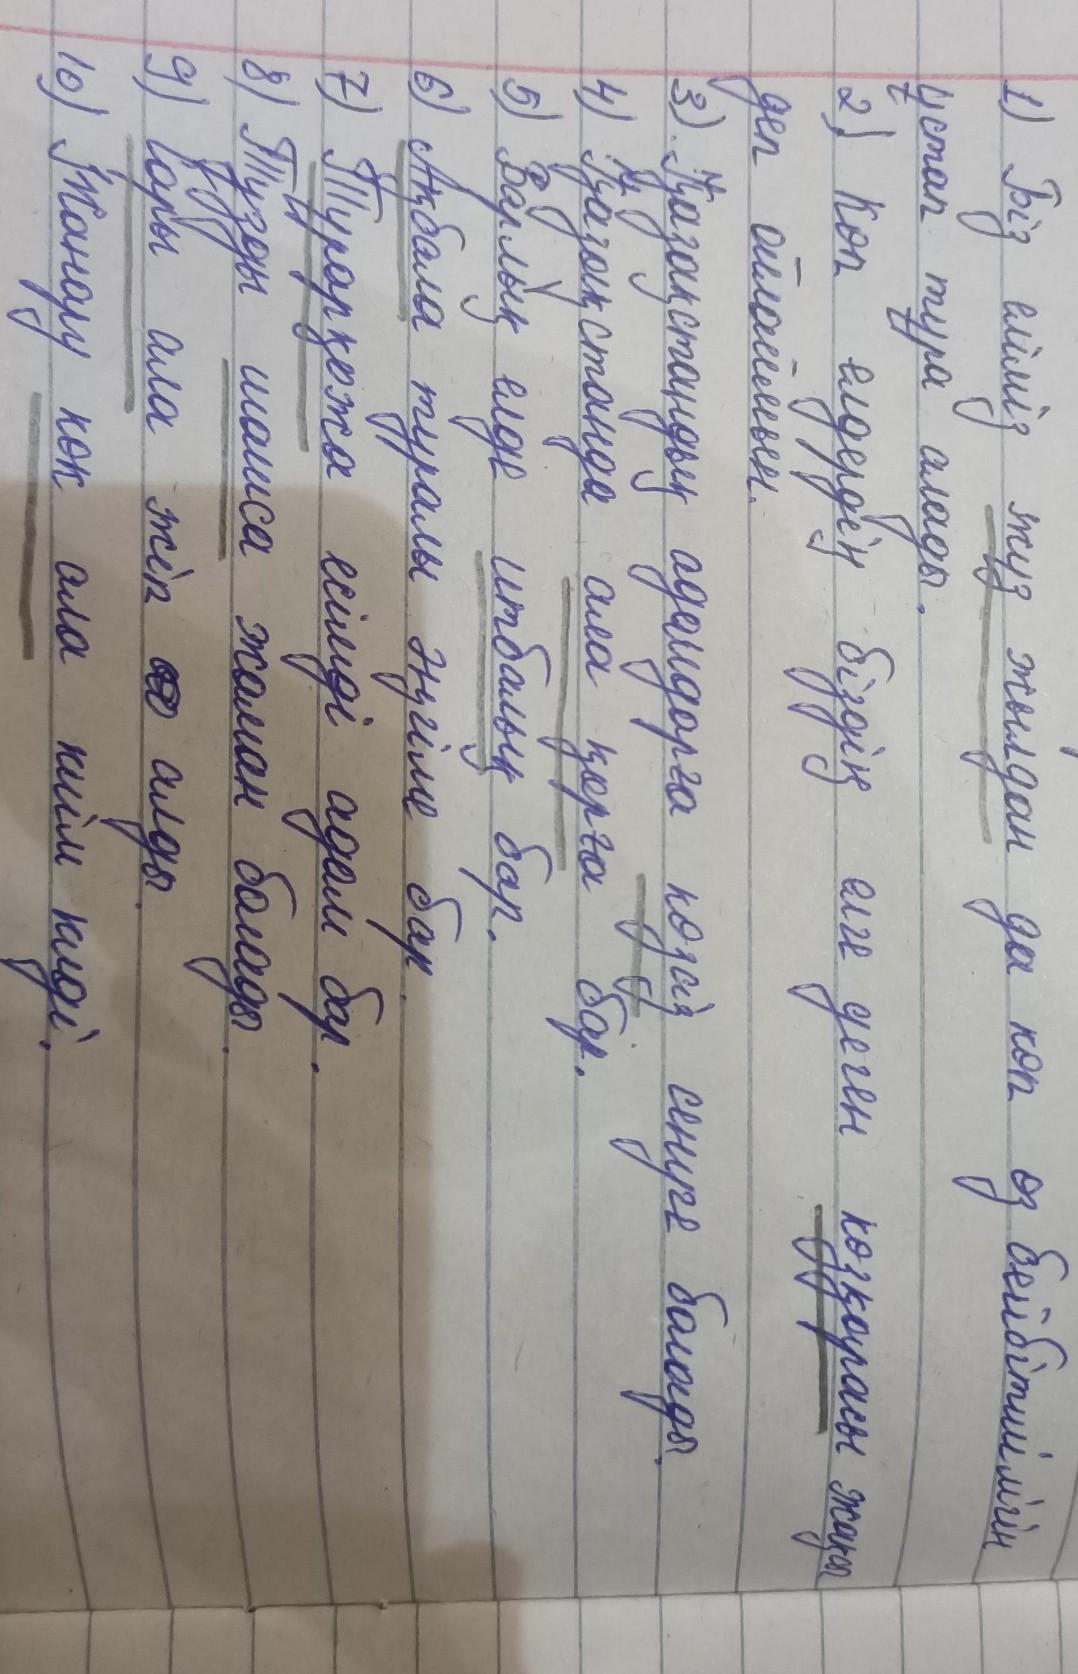 1) Біз еліміз жүз жылдан да көп өз бейбітшілігін
ұстап тұра алады.
2) Көп елдердің біздің елге деген көзқарасы жақсы
деп ойлаймын.
3) Қазақстандық адамдарға көзсіз сенуге болады.
4) Қазақстанда ала қарға бар.
5) Барлық елде итбалық бар.
6) Ақбала туралы әңгіме бар.
7) Тұрарқожа есімді адам бар.
8) Тұзды шамса жаман болады.
9) Қары ала жіп алды.
10) Жанару көк ала киім киді.